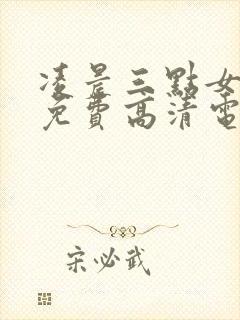 凌晨三點女
免費高清電
宋必武